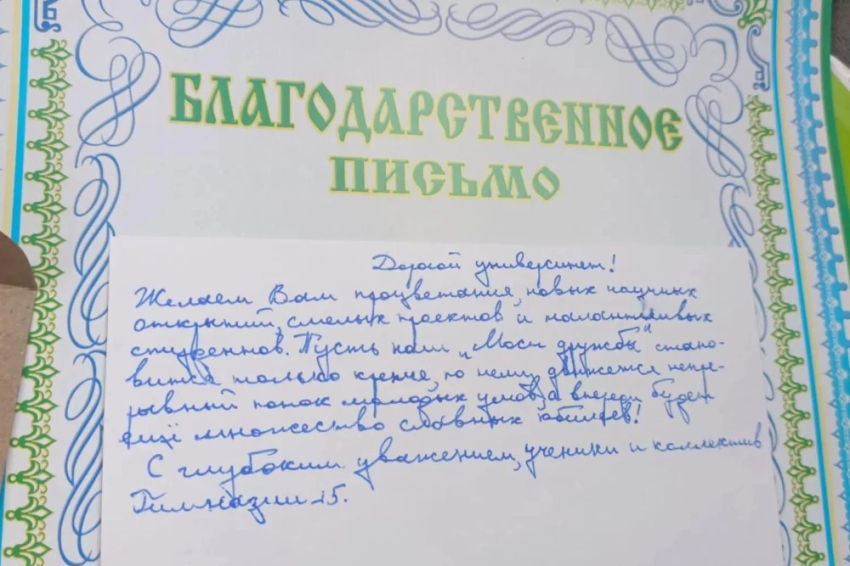 БЛАГОДАРСТВЕННОЕ
ПИСЬМО
Дорогой университет!
Желаем Вам процветания, новых научных
открытий, смелых проектов и талантливых
студентов. Пусть наш „Мост дружбы" стано-
вится только крепче, по нему движется непре-
рывный поток молодых умов, а впереди будет
ещё множество славных юбилеев!
С глубоким уважением, ученики и коллектив
Гимназии 5.